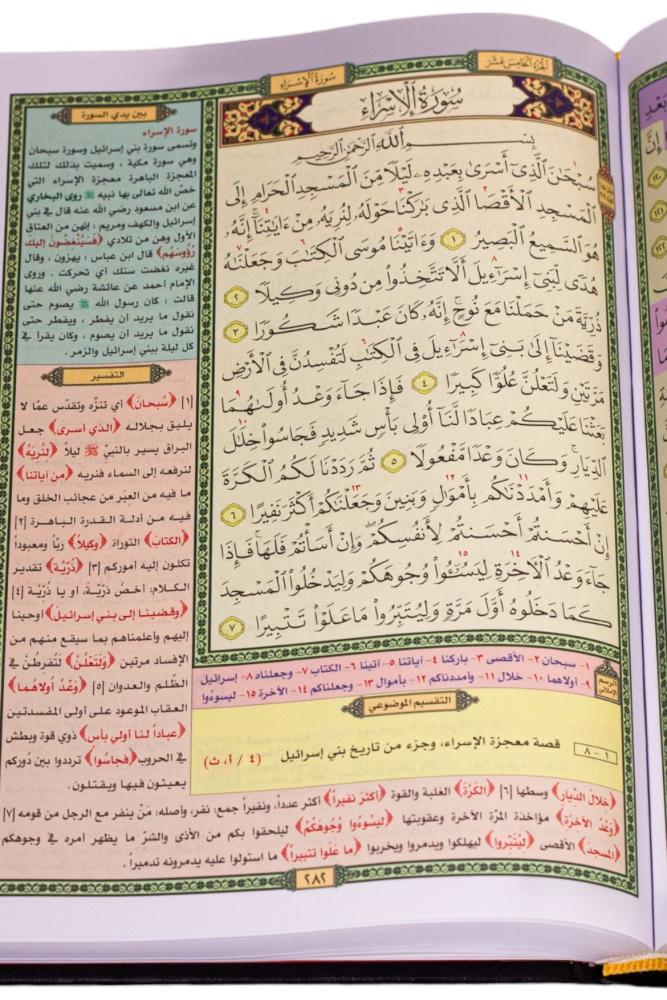 الجزء الخامس عشر
سورة الإسراء
سُورَةُ الإِسْرَاءِ
بِسْمِ اللَّهِ الرَّحْمَٰنِ الرَّحِيمِ
سُبْحَٰنَ ٱلَّذِىٓ أَسْرَىٰ بِعَبْدِهِۦ لَيْلًا مِّنَ ٱلْمَسْجِدِ ٱلْحَرَامِ إِلَى
ٱلْمَسْجِدِ ٱلْأَقْصَا ٱلَّذِى بَٰرَكْنَا حَوْلَهُۥ لِنُرِيَهُۥ مِنْ ءَايَٰتِنَآ إِنَّهُۥ
هُوَ ٱلسَّمِيعُ ٱلْبَصِيرُ ١ وَءَاتَيْنَا مُوسَى ٱلْكِتَٰبَ وَجَعَلْنَٰهُ
هُدًى لِّبَنِىٓ إِسْرَٰٓءِيلَ أَلَّا تَتَّخِذُوا۟ مِن دُونِى وَكِيلًا ٢
ذُرِّيَّةَ مَنْ حَمَلْنَا مَعَ نُوحٍ إِنَّهُۥ كَانَ عَبْدًا شَكُورًا ٣
وَقَضَيْنَآ إِلَىٰ بَنِىٓ إِسْرَٰٓءِيلَ فِى ٱلْكِتَٰبِ لَتُفْسِدُنَّ فِى ٱلْأَرْضِ
مَرَّتَيْنِ وَلَتَعْلُنَّ عُلُوًّا كَبِيرًا ٤ فَإِذَا جَآءَ وَعْدُ أُولَىٰهُمَا
بَعَثْنَا عَلَيْكُمْ عِبَادًا لَّنَآ أُو۟لِى بَأْسٍ شَدِيدٍ فَجَاسُوا۟ خِلَٰلَ
ٱلدِّيَارِ وَكَانَ وَعْدًا مَّفْعُولًا ٥ ثُمَّ رَدَدْنَا لَكُمُ ٱلْكَرَّةَ
عَلَيْهِمْ وَأَمْدَدْنَٰكُم بِأَمْوَٰلٍ وَبَنِينَ وَجَعَلْنَٰكُمْ أَكْثَرَ نَفِيرًا ٦
إِنْ أَحْسَنتُمْ أَحْسَنتُمْ لِأَنفُسِكُمْ وَإِنْ أَسَأْتُمْ فَلَهَا فَإِذَا
جَآءَ وَعْدُ ٱلْءَاخِرَةِ لِيَسُۥٓـُٔوا۟ وُجُوهَكُمْ وَلِيَدْخُلُوا۟ ٱلْمَسْجِدَ
كَمَا دَخَلُوهُ أَوَّلَ مَرَّةٍ وَلِيُتَبِّرُوا۟ مَا عَلَوْا۟ تَتْبِيرًا ٧
الرسم الإملائي
١- سبحان ٢- الأقصى ٣- باركنا ٤- آياتنا ٥- آتينا ٦- الكتاب ٧- وجعلناه ٨- إسرائيل
٩- أولاهما ١٠- خلال ١١- وأمددناكم ١٢- بأموال ١٣- وجعلناكم ١٤- الآخرة ١٥- ليسوءوا
التقسيم الموضوعي
١ - ٨ قصة معجزة الإسراء، وجزء من تاريخ بني إسرائيل (٤ / أ، ث)
بين يدي السورة
سورة الإسراء
وتسمى سورة بني إسرائيل وسورة سبحان
وهي سورة مكية ، وسميت بذلك لتلك
المعجزة الباهرة معجزة الإسراء التي
خصّ الله تعالى بها نبيه ﷺ روى البخاري
عن ابن مسعود رضي الله عنه قال في بني
إسرائيل والكهف ومريم : إنهن من العتاق
الأول وهن من تلادي ﴿فَسَيُنْغِضُونَ إِلَيْكَ
رُؤُوسَهُمْ﴾ قال ابن عباس ، يهزون ، وقال
غيره نغضت سنك أي تحركت . وروى
الإمام أحمد عن عائشة رضي الله عنها
قالت : كان رسول الله ﷺ يصوم حتى
نقول ما يريد أن يفطر ، ويفطر حتى
نقول ما يريد أن يصوم ، وكان يقرأ في
كل ليلة ببني إسرائيل والزمر .
التفسير
[١] ﴿سُبحانَ﴾ أي تنزّه وتقدّس عمّا لا
يليق بجلاله ﴿الذي أسرى﴾ جعل
البراق يسير بالنبيّ ﷺ ليلاً ﴿لنُريَهُ﴾
لنرفعه إلى السماء فنريه ﴿من آياتنا﴾
ما فيه من العِبَر من عجائب الخلق وما
فيه من أدلة القدرة الباهرة [٢]
﴿الكتابَ﴾ التوراة ﴿وكيلاً﴾ ربّاً ومعبوداً
تكلون إليه أموركم [٣] ﴿ذُرِّيَّةَ﴾ تقدير
الكلام: أخصّ ذرّيّةَ، أو يا ذُرّيَّة [٤]
﴿وقضينا إلى بني إسرائيل﴾ أوحينا
إليهم وأعلمناهم بما سيقع منهم من
الإفساد مرتين ﴿ولتَعْلُنَّ﴾ لتُفرطُنّ في
الظلم والعدوان [٥] ﴿وعْدُ أولاهما﴾
العقاب الموعود على أولى المفسدتين
﴿عباداً لنا أولي بأس﴾ ذوي قوة وبطش
في الحروب ﴿فجاسُوا﴾ ترددوا بين دُوركم
يعيثون فيها ويقتلون.
﴿خلالَ الدِّيار﴾ وسطها [٦] ﴿الكَرَّةَ﴾ الغلبة والقوة ﴿أكثرَ نفيراً﴾ أكثر عدداً، ونفيراً جمع: نفر، وأصله: مَنْ ينفر مع الرجل من قومه [٧]
﴿وَعْدُ الآخرةِ﴾ مؤاخذة المرّة الآخرة وعقوبتها ﴿ليسُوءُوا وُجُوهَكُمْ﴾ ليلحقوا بكم من الأذى والشرّ ما يظهر أمره في وجوهكم
﴿المسجدَ﴾ الأقصى ﴿ليُتَبِّروا﴾ ليهلكوا ويدمروا ويخربوا ﴿ما عَلَوا تتبيراً﴾ ما استولوا عليه يدمرونه تدميراً .
٢٨٢